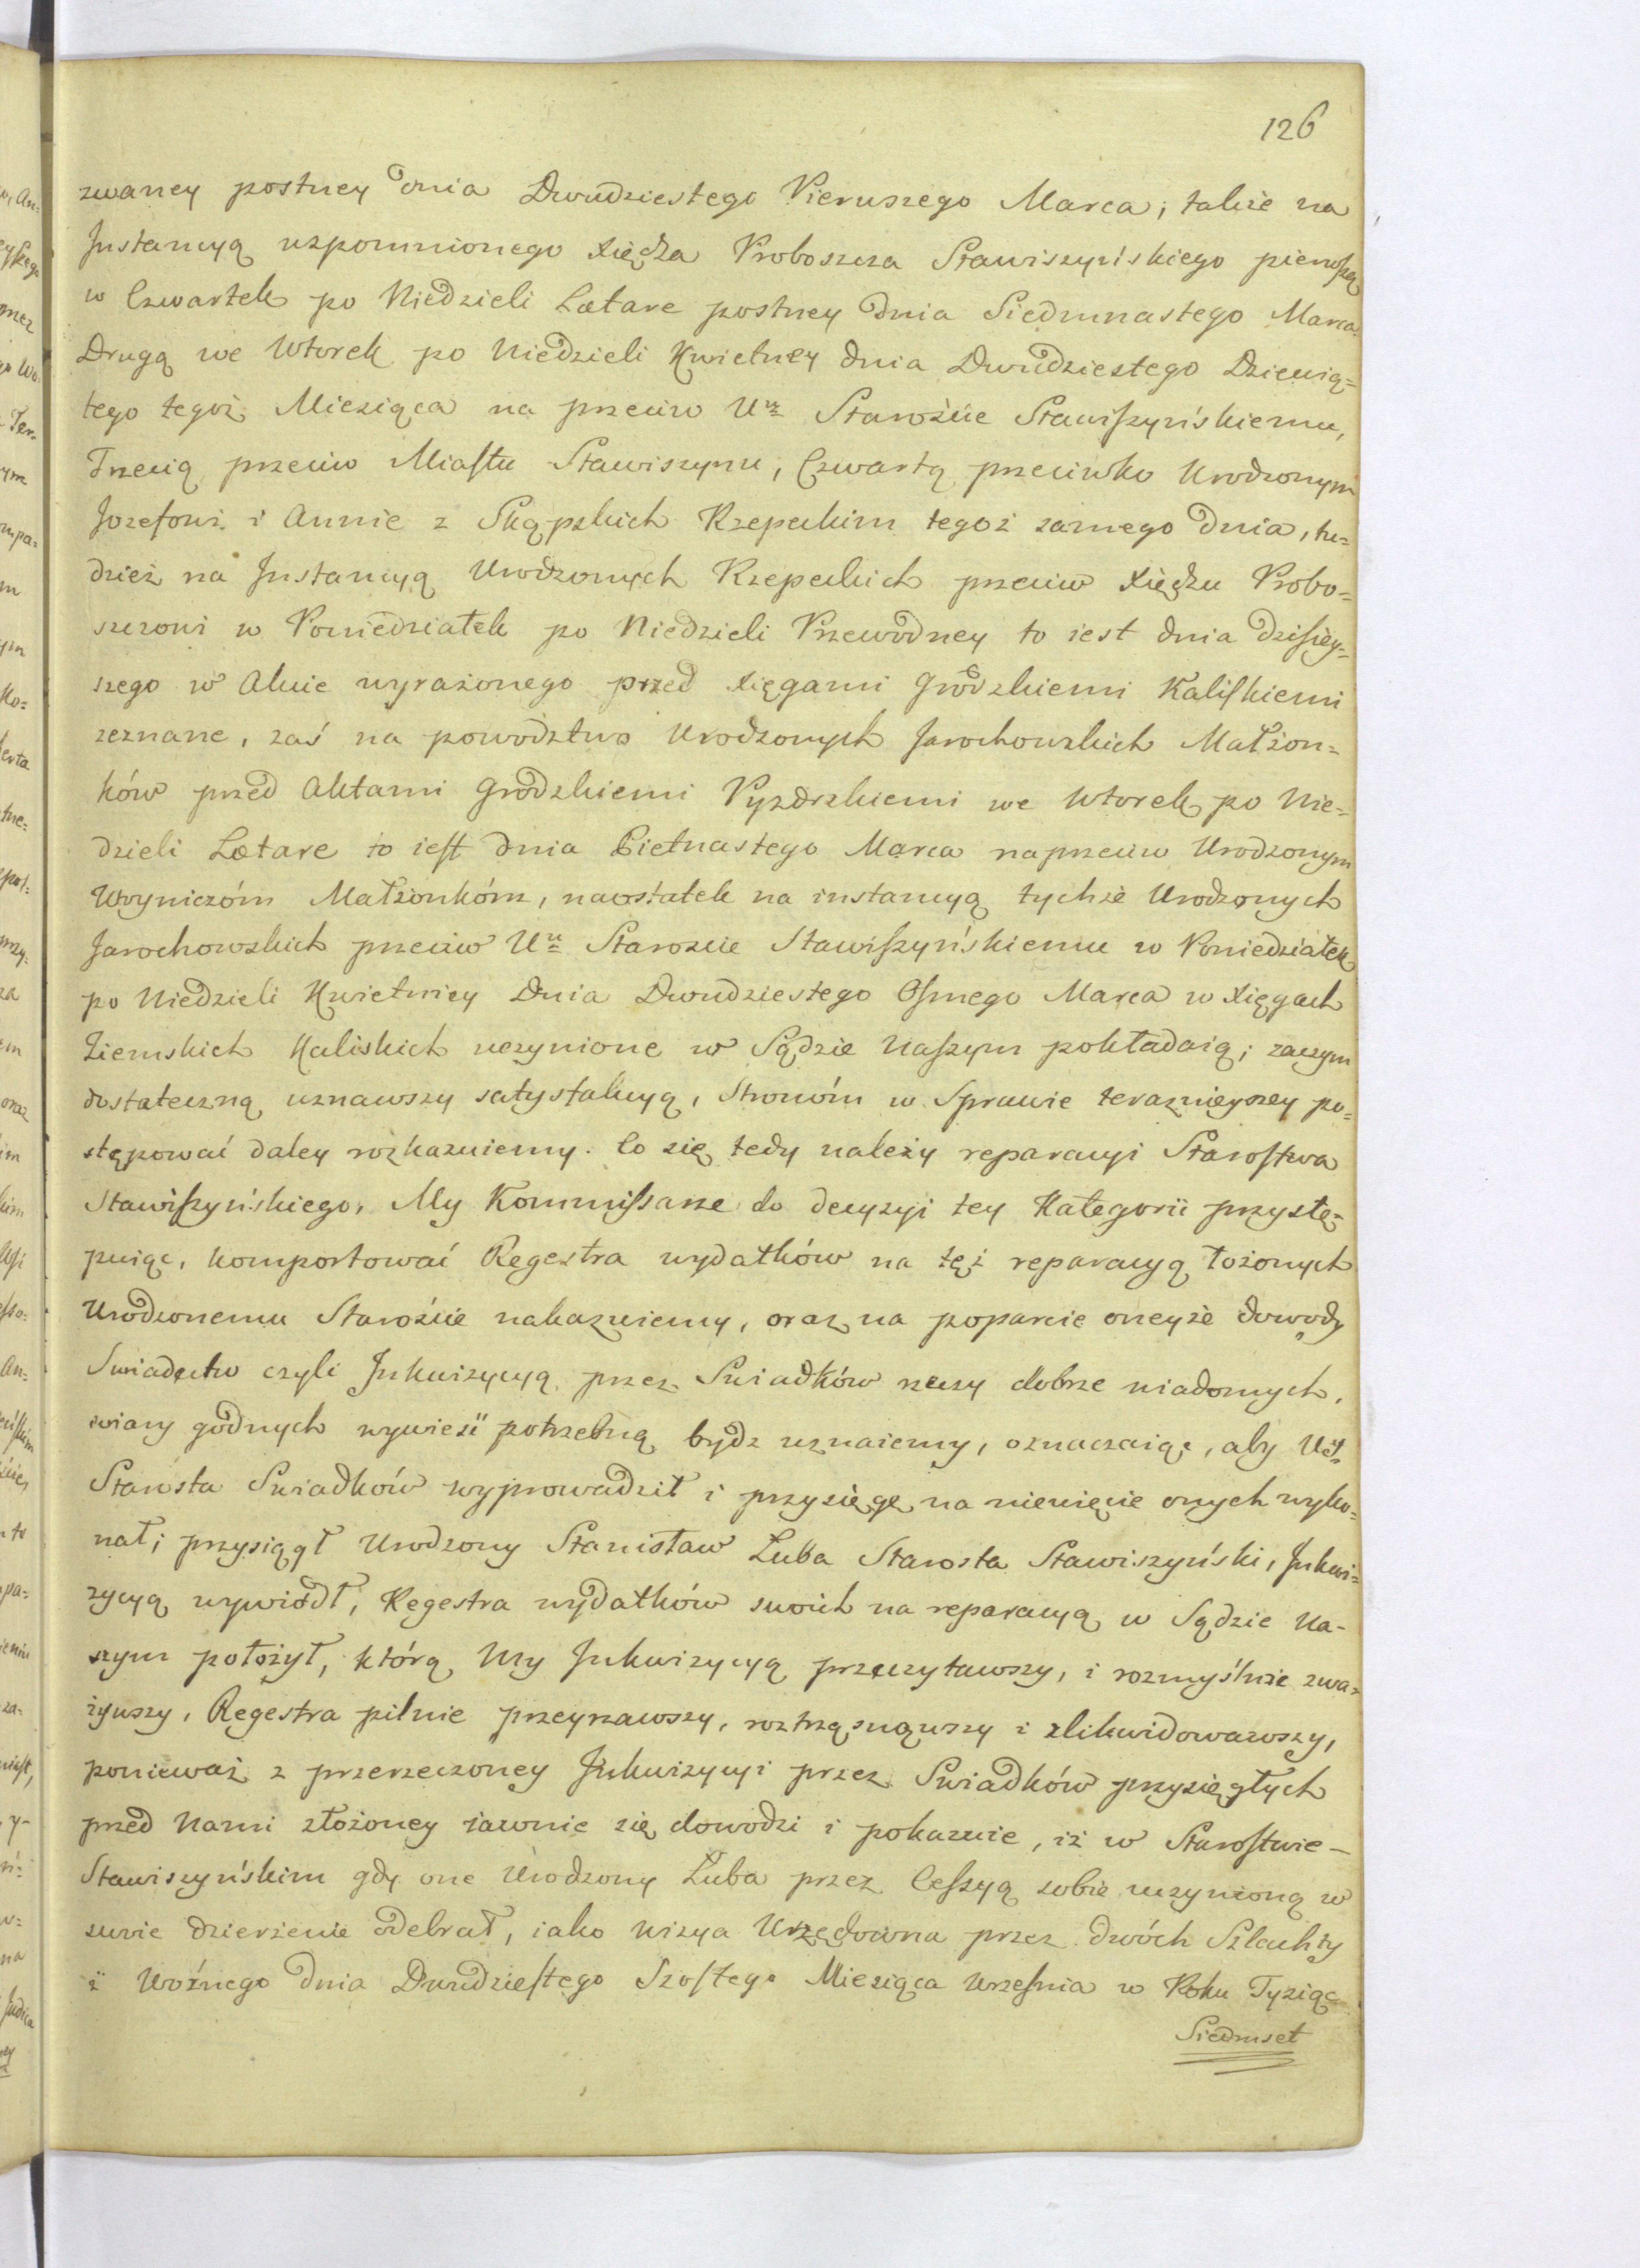 126
zwaney postney dnia Dwudziestego Pierwszego Marca; takze na
Instancyą wspomnionego Xiędza Proboszcza Stawiszyńskiego pierwszą
w Czwartek po Niedzieli Lætare postney dnia Siedmnastego Marca
Drugą we Wtorek po Niedzieli Kwietney dnia Dwudziestego Dziewią=
tego tegoż Miesiąca na przeciw Ur: Starościie Stawiszyńskiemu,
Trzecią przeciw Miastu Stawiszynu, Czwartą przeciwko Urodzonym
Jozefowi i Annie z Skąpskich Rzepeckim tegoż samego dnia, tu=
dzież na Instancyą Urodzonych Rzepeckich przeciw Xiędzu Probo=
szczowi w Poniedziałek po Niedzieli Przewodney to iest dnia dzisiey=
szego w Akcie wyrażonego przed Xięgami Grodzkiemi Kaliskiemi
zeznane, zaś na powodztwo Urodzonych Jarochowskich Małżon=
ków przed Aktami Grodzkiemi Pyzdrskiemi we Wtorek po Nie=
dzieli Lætare to iest dnia Pietnastego Marca naprzeciw Urodzonym
Woyniczóm Małżonkóm, naostatek na instancyą tychże Urodzonych
Jarochowskich przeciw Ur: Staroscie Stawiszyńskiemu w Poniedziałek
po Niedzieli Kwietniey Dnia Dwudziestego Osmego Marca w Xięgach
Ziemskich Kaliskich uczynione w Sądzie Naszym pokładaią; zaczym
dostateczną uznawszy satysfakcyą, Stronóm w Sprawie teraznieyszey po=
stępować daley rozkazuiemy. Co się tedy należy reparacyi Starostwa
Stawiszyńskiego, My Kommissarze do decyzyi tey Kategorii przystę=
puiąc, komportować Regestra wydatków na tęż reparacyą łożonych
Urodzonemu Starościie nakazuiemy, oraz na poparcie oneyże dowody
Swiadectw czyli Inkwizycyą przez Swiadków rzeczy dobrze wiadomych,
wiary godnych wywieść potrzebną bydz uznaiemy, oznaczaiąc, aby Ur:
Starosta Swiadków wyprowadził i przysięgę na niewięcie onych wyko=
nał; przysiągł Urodzony Stanisław Łuba Starosta Stawiszyński, Inkwi=
zycyą wywiódł, Regestra wydatków swoich na reparacyą w Sądzie Na-
szym położył, którą My Inkwizycyą przeczytawszy, i rozmyślnie zwa=
żywszy, Regestra pilnie przeyrzawszy, roztrząsnąwszy i zlikwidowawszy,
ponieważ z przerzeczoney Inkwizycyi przez Swiadków przysięgłych
przed Nami złożoney iawnie się dowodzi i pokazuie, iż w Starostwie -
Stawiszyńskim gdy one Urodzony Łuba przez Cessyą sobie uczynioną w
swoie dzierżenie odebrał, iako wizya Urzędowna przez dwóch Szlachty
i Woźnego dnia Dwudziestego Szostego Miesiąca Wrzesnia w Roku Tysiąc
Siedmset